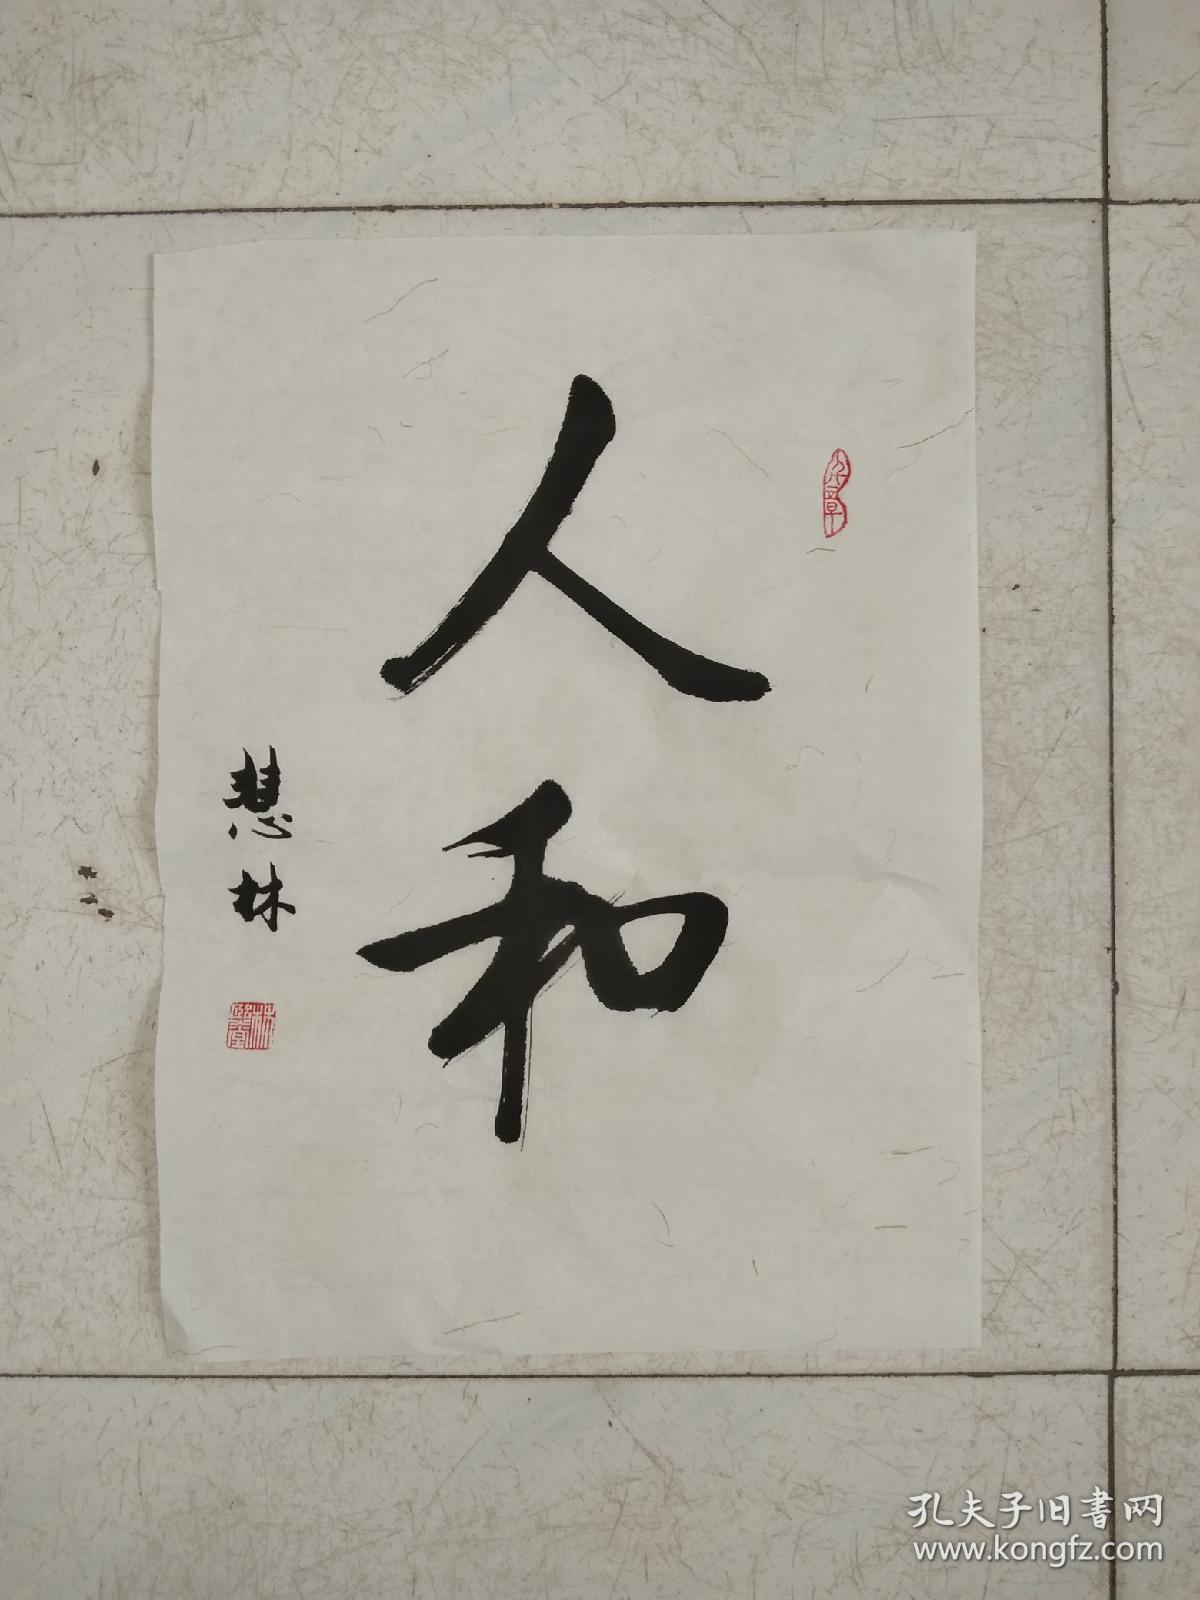 人和
慧林
孔夫子旧書网
www.kongfz.com